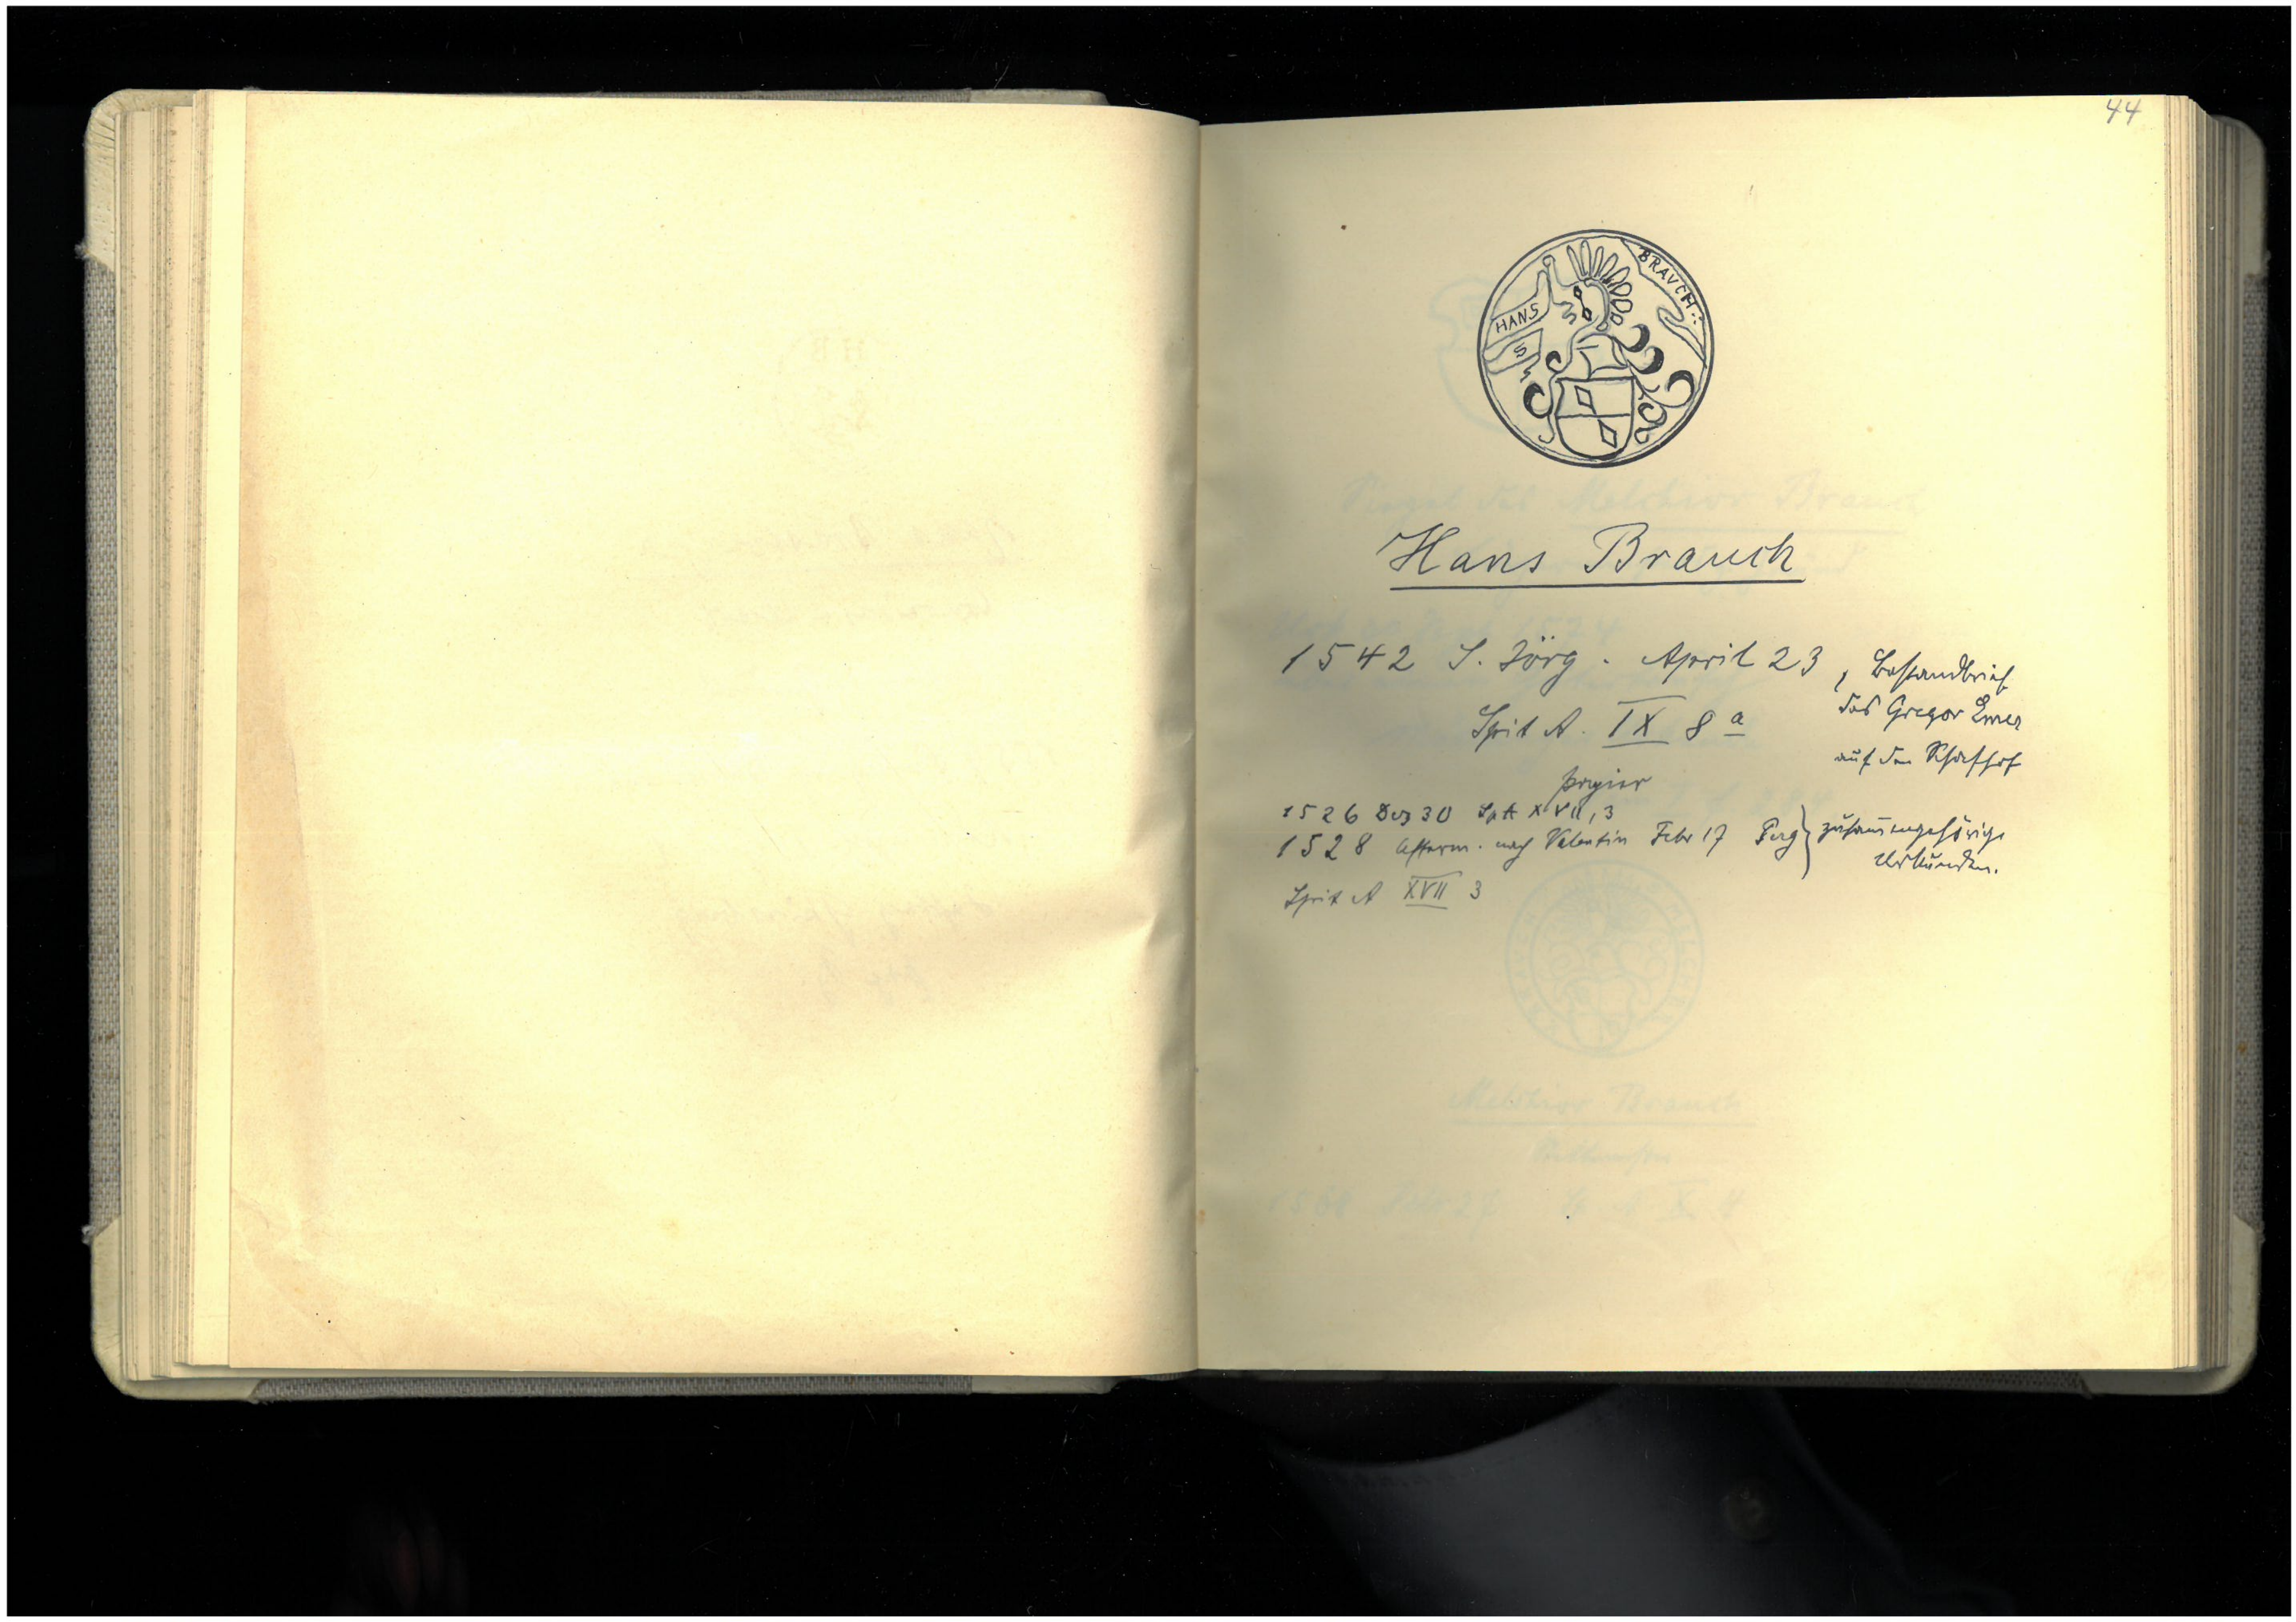 44
BRAVCH
HANS
S
Hans Brauch
1542 S. Jörg. April 23, Bestandbrief
des Gregor Emer
Spit A. IX 8 a
auf den Schafhof
Papier
1526 Dez 30 Sp A XVII, 3
1528 Afterm. nach Valentin Febr 17 Perg } zusammengehörige
Urkunden.
Spit A XVII 3